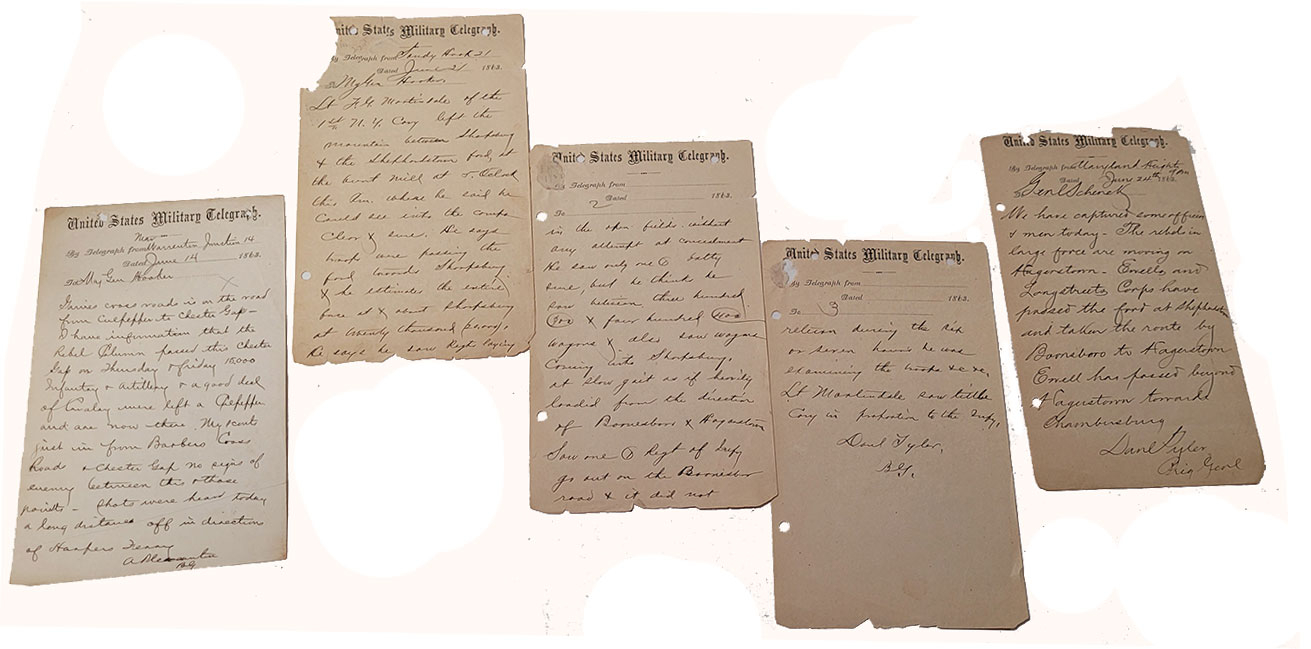 United States Military Telegraph.
Near
By Telegraph from Warrenton Junction 14
Dated June 14 1863.
To Maj Gen Hooker
Gaines cross roads is on the road
from Culpepper to Chester Gap -
I have information that the
Rebel Column passed this Chester
Gap on Thursday & friday 15000
Infantry & Artillery & a good deal
of Cavalry were left a Culpepper
and are now there. My scouts
just in from Barbers Cross
Roads & Chester Gap no signs of
enemy between this & those
points - Shots were hear today
a long distance off in direction
of Harpers Ferry
A Pleasonton
BG
United States Military Telegraph.
By Telegraph from Sandy Hook 21
Dated June 21 1863.
Maj Gen Hooker
Lt Martindale of the
1st N. Y. Cavy left the
mountain between Sharpsburg
& the Shepherdstown ford, at
the burnt mill at Oclock
this Am. where he said he
could see into the camps
clear & sure. He says
troops are passing the
ford towards Sharpsburg
& he estimates the
force at & about Sharpsburg
at twenty thousand 20000,
He says he saw Regts
United States Military Telegraph.
By Telegraph from
Dated 1863.
To 2
in the open fields without
any attempt at concealment
He saw only one batty
sure, but he thinks he
saw between three hundred
300 & four hundred 400
wagons & also saw wagons
Coming into Sharpsburg,
at slow gait as if heavily
loaded from the direction
of Boonesboro & Hagerstown
Saw one Regt of Infy
go out on the Boonesboro
road & it did not
United States Military Telegraph.
By Telegraph from
Dated 1863.
To 3
return during the six
or seven hours he was
examining the troops &c &c,
Lt Martindale saw little
Cavy in proportion to the Infy,
Danl Tyler,
B.G.
United States Military Telegraph.
By Telegraph from Maryland Heights
Dated June 24th 1863.
Genl Schenck
We have captured some officers
& men today - The rebels in
large force are moving on
Hagerstown - Ewells and
Longstreets Corps have
passed the ford at
and taken the route by
Boonsboro to Hagerstown
Ewell has passed beyond
Hagerstown towards
Chambersburg
Danl Tyler
Brig Genl